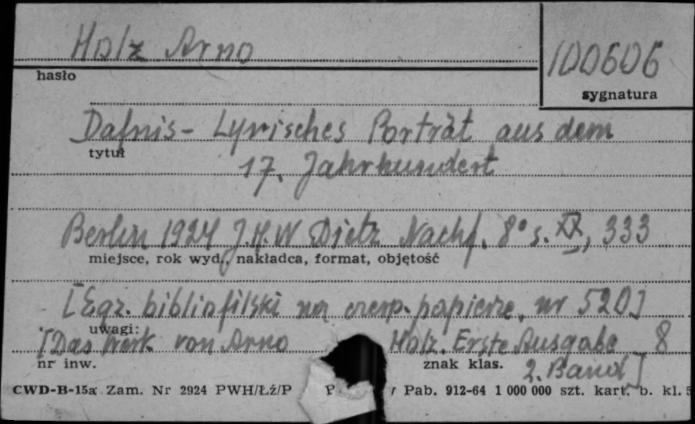 Holz Arno
100606
hasło
sygnatura
Dafnis - Lyrisches Porträt aus dem
tytuł
17. Jahrhundert
Berlin 1924 J.H.W Dietz Nachf. 8° s. XX, 333
miejsce, rok wyd., nakładca, format, objętość
[Egz. bibliofilski na czerp. papierze, nr 520]
uwagi:
[Das Werk von Arno Holz. Erste Ausgabe 8
nr inw. znak klas. 2. Band]
CWD-B-15a Zam. Nr 2924 PWH/Łź/P P y Pab. 912-64 1 000 000 szt. kart. b. kl. 5